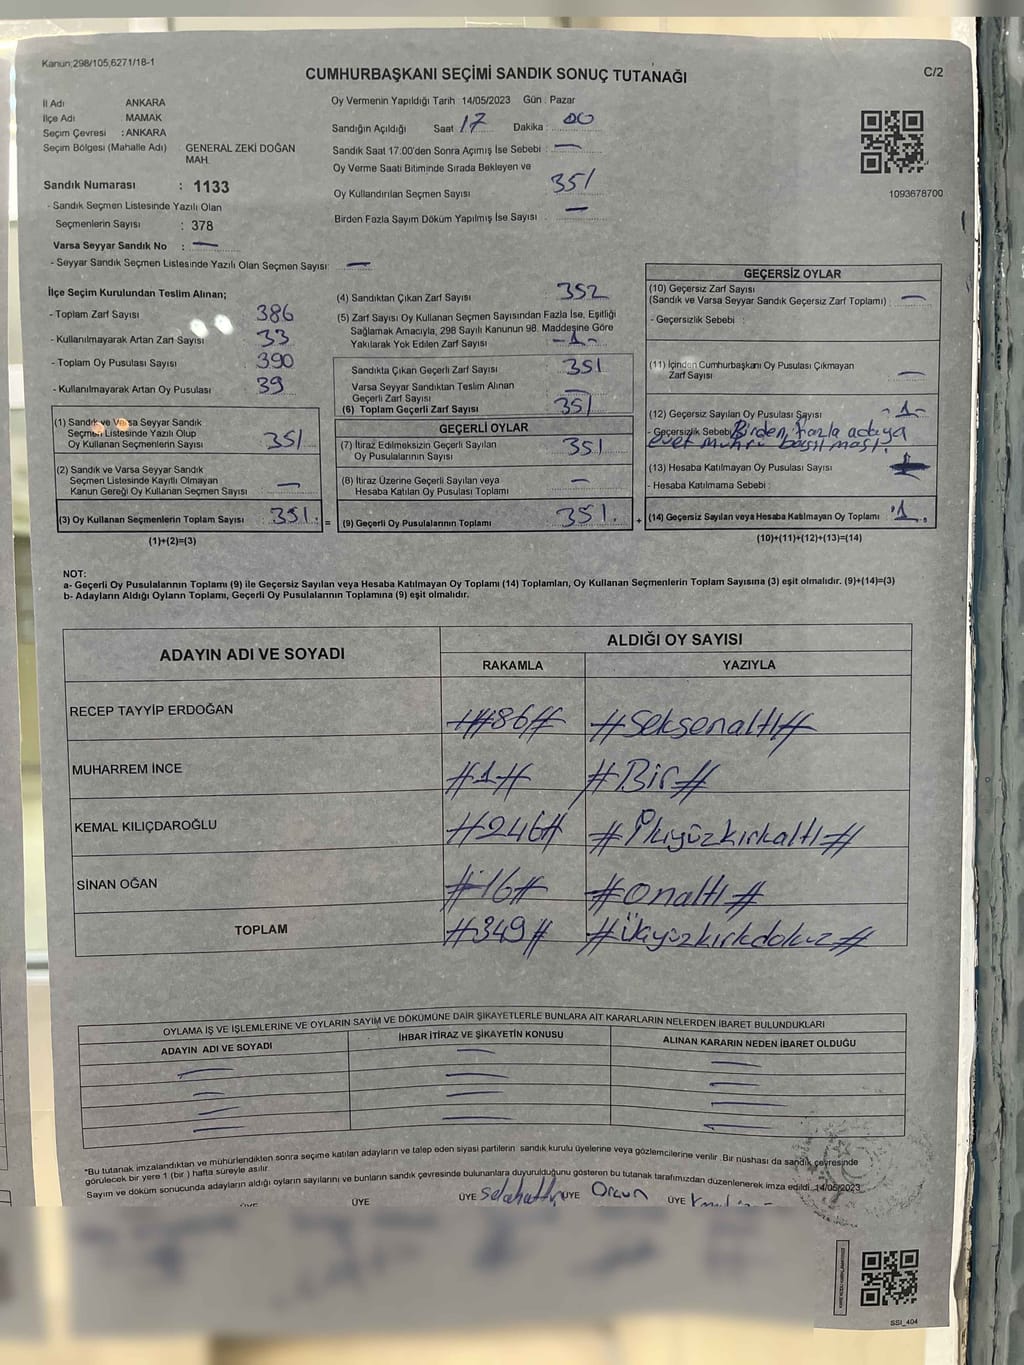 Kanun;298/105,6271/18-1
CUMHURBAŞKANI SEÇİMİ SANDIK SONUÇ TUTANAĞI
C/2
İl Adı ANKARA
İlçe Adı MAMAK
Seçim Çevresi : ANKARA
Seçim Bölgesi (Mahalle Adı) GENERAL ZEKİ DOĞAN MAH.
Sandık Numarası : 1133
- Sandık Seçmen Listesinde Yazılı Olan
Seçmenlerin Sayısı : 378
Varsa Seyyar Sandık No : —
- Seyyar Sandık Seçmen Listesinde Yazılı Olan Seçmen Sayısı —
Oy Vermenin Yapıldığı Tarih 14/05/2023 Gün : Pazar
Sandığın Açıldığı Saat 17 Dakika : 00
Sandık Saat 17.00'den Sonra Açımış İse Sebebi : —
Oy Verme Saati Bitiminde Sırada Bekleyen ve
Oy Kullandırılan Seçmen Sayısı 351
Birden Fazla Sayım Döküm Yapılmış İse Sayısı —
1093678700
İlçe Seçim Kurulundan Teslim Alınan;
- Toplam Zarf Sayısı 386
- Kullanılmayarak Artan Zarf Sayısı 33
- Toplam Oy Pusulası Sayısı 390
- Kullanılmayarak Artan Oy Pusulası 39
(1) Sandık ve Varsa Seyyar Sandık
Seçmen Listesinde Yazılı Olup
Oy Kullanan Seçmenlerin Sayısı 351
(2) Sandık ve Varsa Seyyar Sandık
Seçmen Listesinde Kayıtlı Olmayan
Kanun Gereği Oy Kullanan Seçmen Sayısı —
(3) Oy Kullanan Seçmenlerin Toplam Sayısı 351. =
(1)+(2)=(3)
(4) Sandıktan Çıkan Zarf Sayısı 352
(5) Zarf Sayısı Oy Kullanan Seçmen Sayısından Fazla İse, Eşitliği
Sağlamak Amacıyla, 298 Sayılı Kanunun 98. Maddesine Göre
Yakılarak Yok Edilen Zarf Sayısı -1-
Sandıkta Çıkan Geçerli Zarf Sayısı 351
Varsa Seyyar Sandıktan Teslim Alınan
Geçerli Zarf Sayısı —
(6) Toplam Geçerli Zarf Sayısı 351
GEÇERLİ OYLAR
(7) İtiraz Edilmeksizin Geçerli Sayılan
Oy Pusulalarının Sayısı 351
(8) İtiraz Üzerine Geçerli Sayılan veya
Hesaba Katılan Oy Pusulası Toplamı —
(9) Geçerli Oy Pusulalarının Toplamı 351. +
GEÇERSİZ OYLAR
(10) Geçersiz Zarf Sayısı
(Sandık ve Varsa Seyyar Sandık Geçersiz Zarf Toplamı) : —
- Geçersizlik Sebebi :
(11) İçinden Cumhurbaşkanı Oy Pusulası Çıkmayan
Zarf Sayısı —
(12) Geçersiz Sayılan Oy Pusulası Sayısı -1-
- Geçersizlik Sebebi Birden fazla adaya
evet mührü basılması.
(13) Hesaba Katılmayan Oy Pusulası Sayısı
- Hesaba Katılmama Sebebi
(14) Geçersiz Sayılan veya Hesaba Katılmayan Oy Toplamı 1.
(10)+(11)+(12)+(13)=(14)
NOT:
a- Geçerli Oy Pusulalarının Toplamı (9) ile Geçersiz Sayılan veya Hesaba Katılmayan Oy Toplamı (14) Toplamları, Oy Kullanan Seçmenlerin Toplam Sayısına (3) eşit olmalıdır. (9)+(14)=(3)
b- Adayların Aldığı Oyların Toplamı, Geçerli Oy Pusulalarının Toplamına (9) eşit olmalıdır.
ADAYIN ADI VE SOYADI ALDIĞI OY SAYISI
RAKAMLA YAZIYLA
RECEP TAYYİP ERDOĞAN ##86# #Seksenaltı#
MUHARREM İNCE #1# #Bir#
KEMAL KILIÇDAROĞLU #246# #İkiyüzkırkaltı#
SİNAN OĞAN #16# #onaltı#
TOPLAM #349# #Üçyüzkırkdokuz#
OYLAMA İŞ VE İŞLEMLERİNE VE OYLARIN SAYIM VE DÖKÜMÜNE DAİR ŞİKAYETLERLE BUNLARA AİT KARARLARIN NELERDEN İBARET BULUNDUKLARI
ADAYIN ADI VE SOYADI İHBAR İTİRAZ VE ŞİKAYETİN KONUSU ALINAN KARARIN NEDEN İBARET OLDUĞU
*Bu tutanak imzalandıktan ve mühürlendikten sonra seçime katılan adayların ve talep eden siyasi partilerin sandık kurulu üyelerine veya gözlemcilerine verilir. Bir nüshası da sandık çevresinde
görülecek bir yere 1 (bir) hafta süreyle asılır.
Sayım ve döküm sonucunda adayların aldığı oyların sayılarını ve bunların sandık çevresinde bulunanlara duyurulduğunu gösteren bu tutanak tarafımızdan düzenlenerek imza edildi. 14/05/2023
ÜYE ÜYE ÜYE Orcun ÜYE
SSI_404